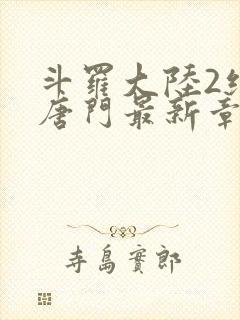 斗羅大陸2
唐門最新章
寺島實郎